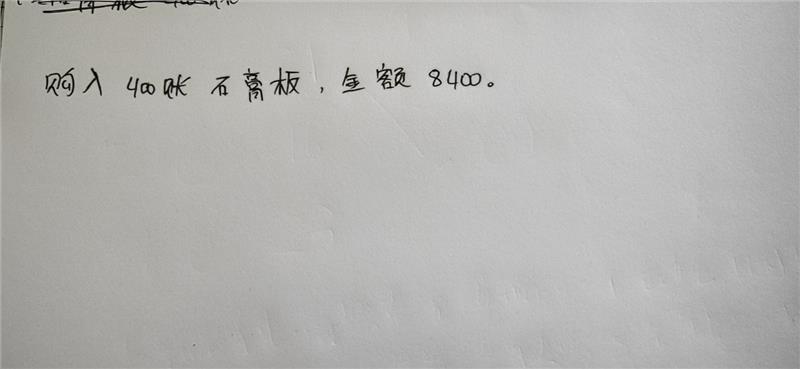 购入 400账 石膏板，金额 8400。